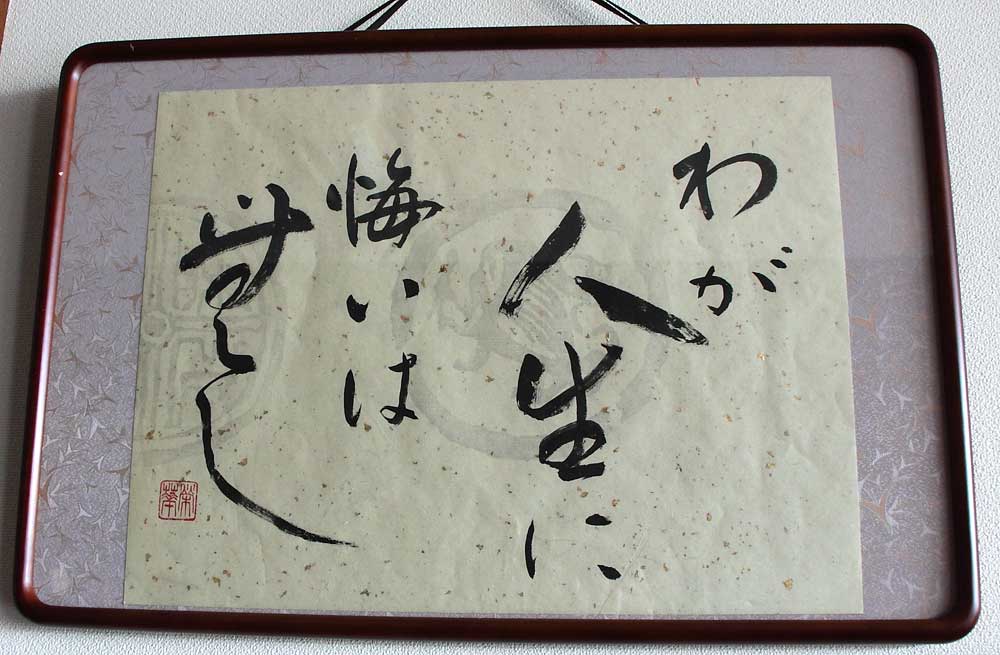 わが
人生に
悔いは
無し